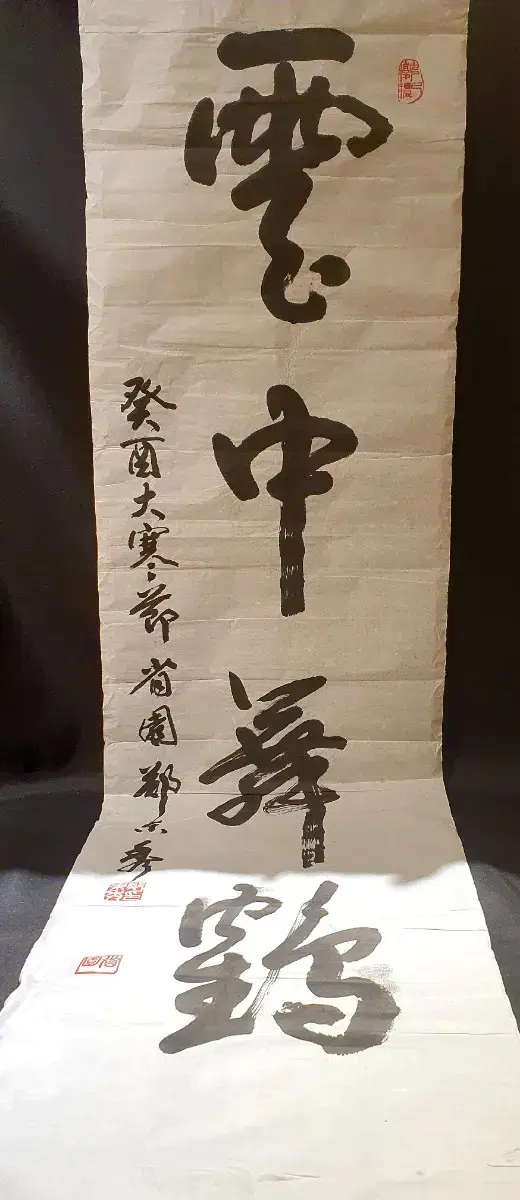 雲中舞鶴
癸酉大寒節 省園 鄭